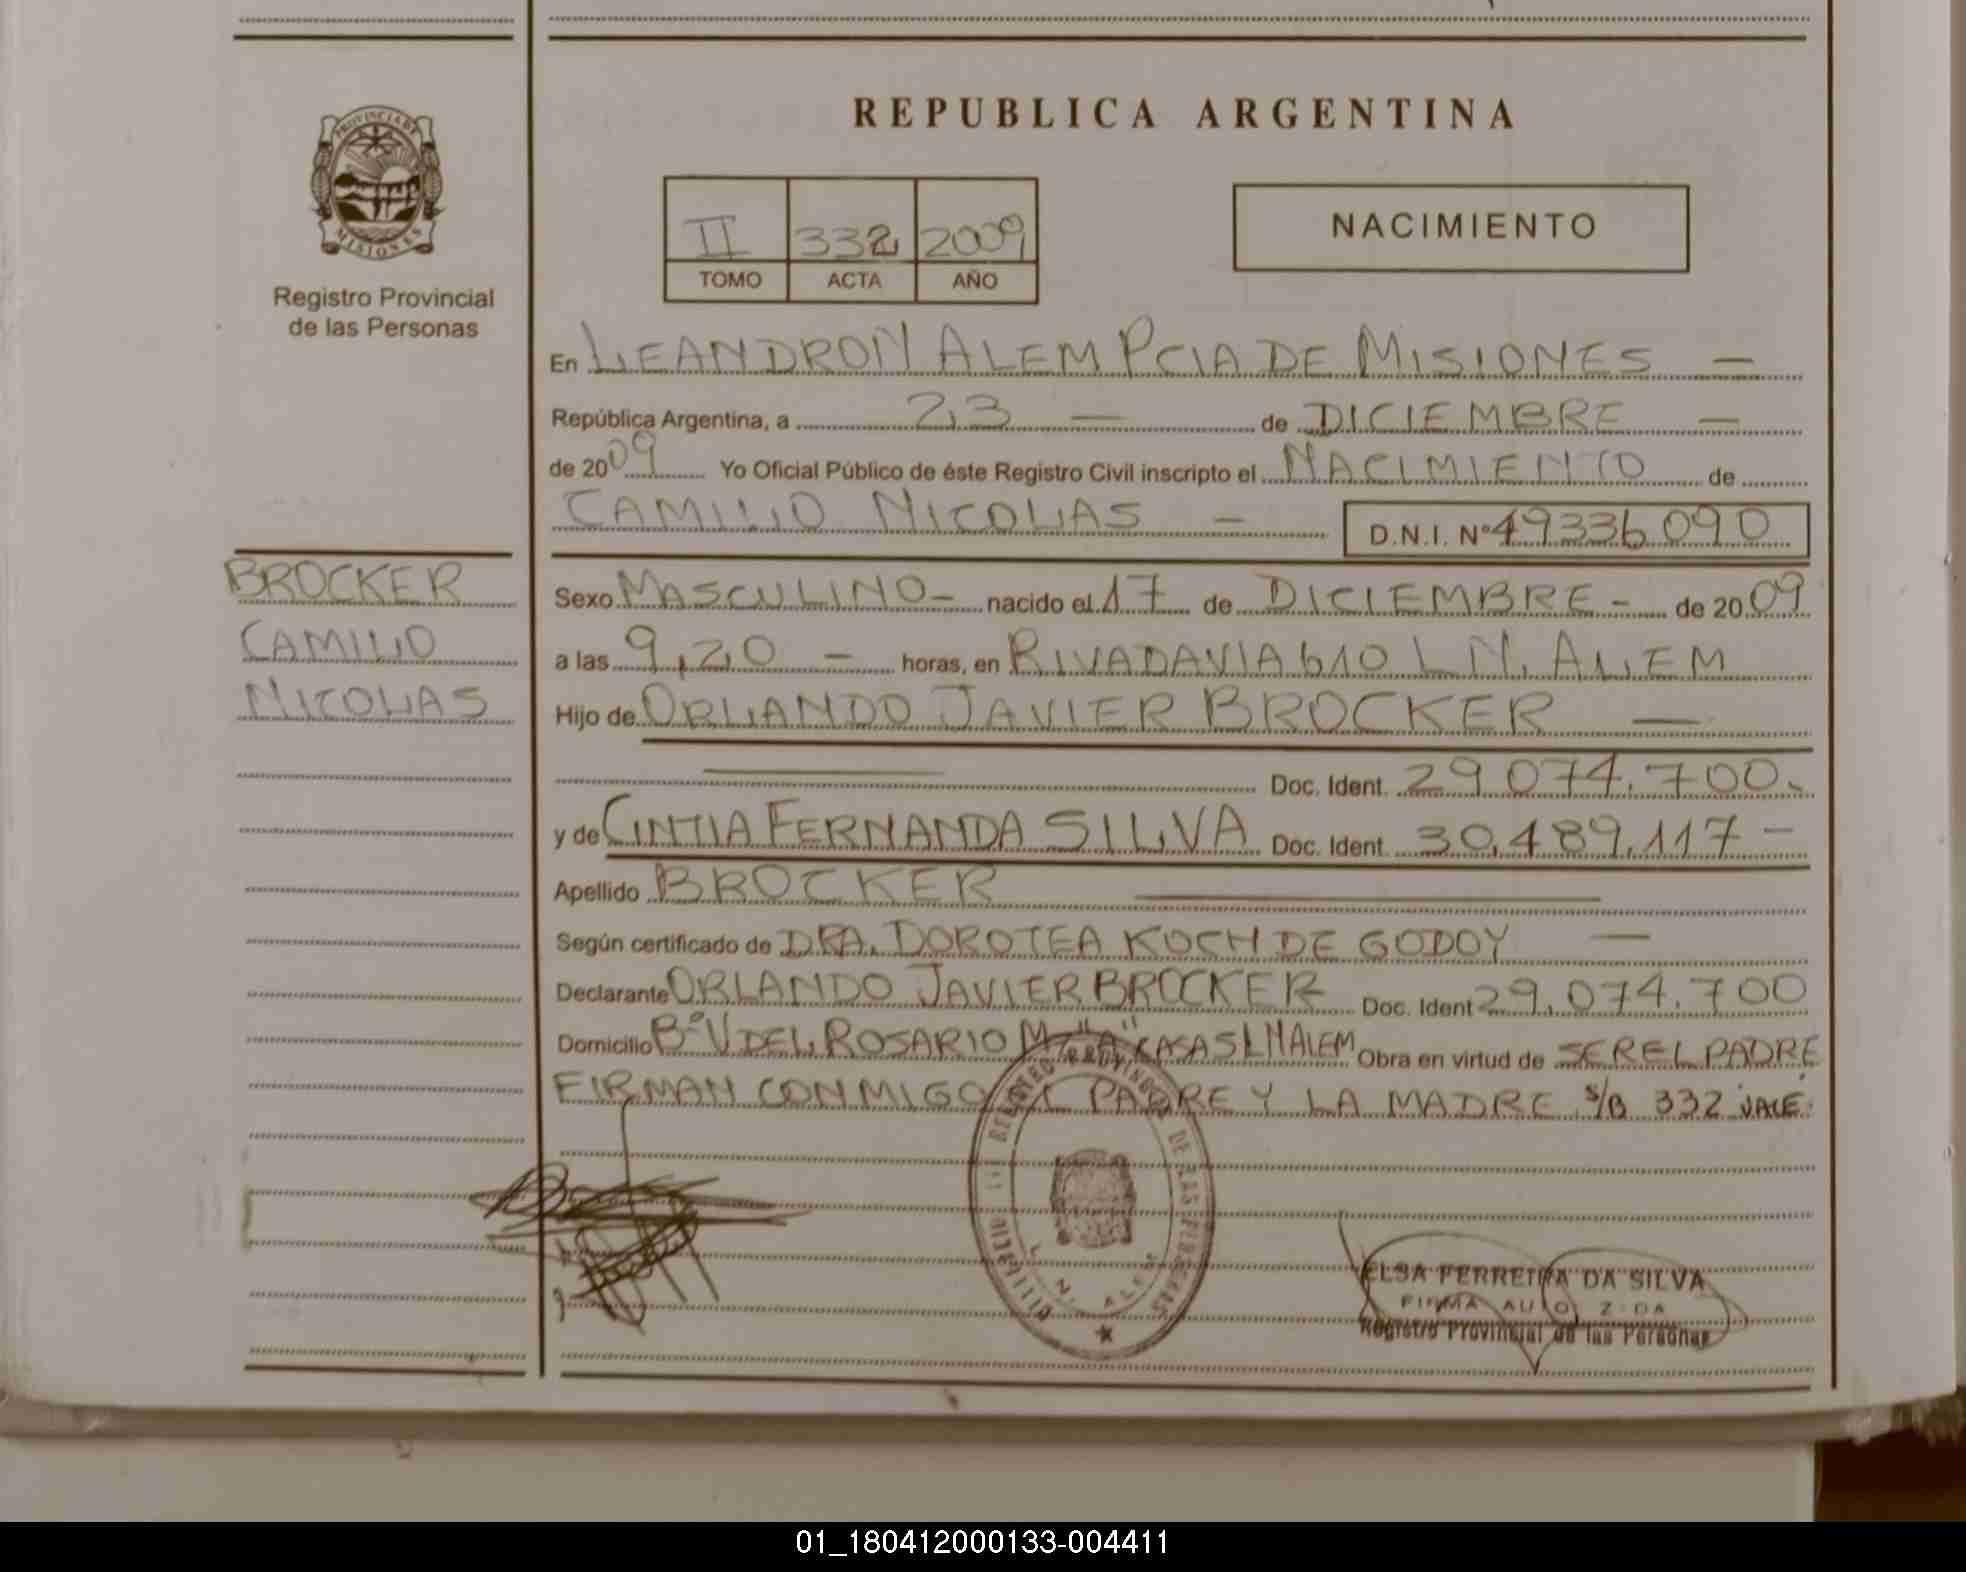 REPUBLICA ARGENTINA
PROVINCIA DE
MISIONES
Registro Provincial
de las Personas
II 332 2009
TOMO ACTA AÑO
NACIMIENTO
En LEANDRO N ALEM PCIA DE MISIONES —
República Argentina, a 23 — de DICIEMBRE —
de 2009 Yo Oficial Público de éste Registro Civil inscripto el NACIMIENTO de
CAMILO NICOLAS — D.N.I. Nº 49336090
BROCKER
CAMILO
NICOLAS
Sexo MASCULINO - nacido el 17 de DICIEMBRE - de 2009
a las 9,20 — horas, en RIVADAVIA 610 L N. ALEM
Hijo de ORLANDO JAVIER BROCKER —
Doc. Ident. 29.074.700.
y de CINTIA FERNANDA SILVA Doc. Ident. 30.489.117 -
Apellido BROCKER
Según certificado de DRA. DOROTEA KOCH DE GODOY —
Declarante ORLANDO JAVIER BROCKER Doc. Ident 29.074.700
Domicilio Bº V DEL ROSARIO Mz "A" CASA 5 L N ALEM Obra en virtud de SER EL PADRE
FIRMAN CONMIGO PADRE Y LA MADRE S/B 332 VALE.
REGISTRO PROVINCIAL DE LAS PERSONAS
L. N. ALEM
ELSA FERREIRA DA SILVA
FIRMA AUTORIZADA
Registro Provincial de las Personas
01_180412000133-004411